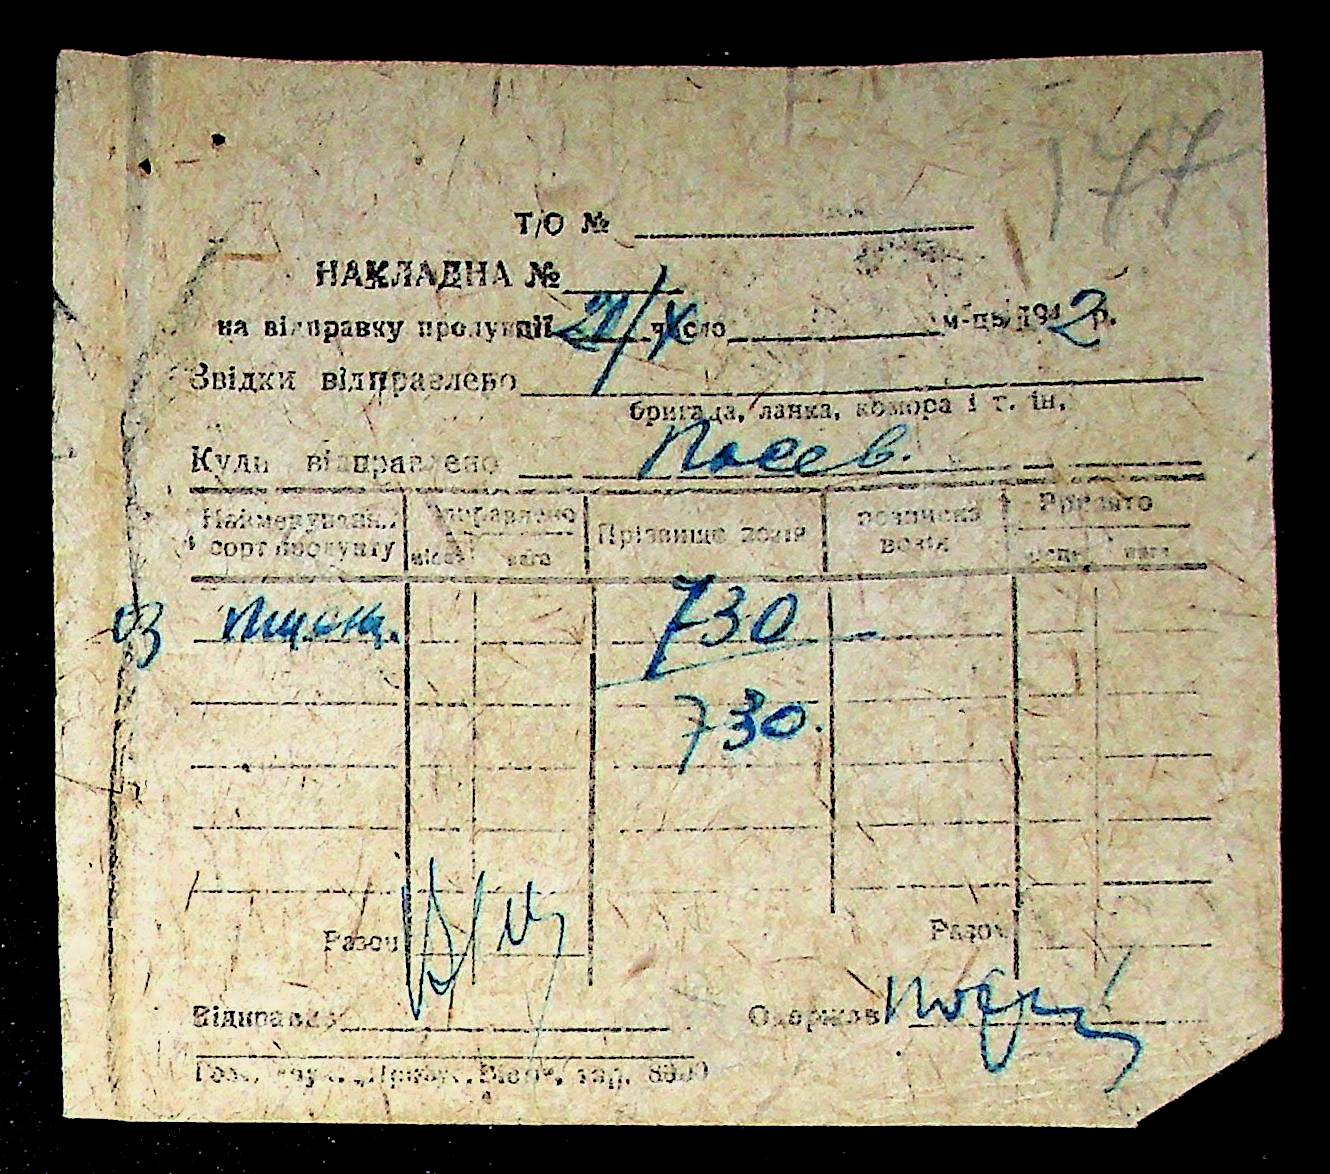 147
Т/О №
НАКЛАДНА №
на відправку продукції 21/X число м-ця 1942 р.
Звідки відправлено
бригада, ланка, комора і т. ін.
Куди відправлено Посев.
Найменуванн. сорт продукту Відправлено місць вага Прізвище возія розписка возія Прийнято місць вага
оз пшениц. 730
730.
Разом Разом
Відправив Одержав